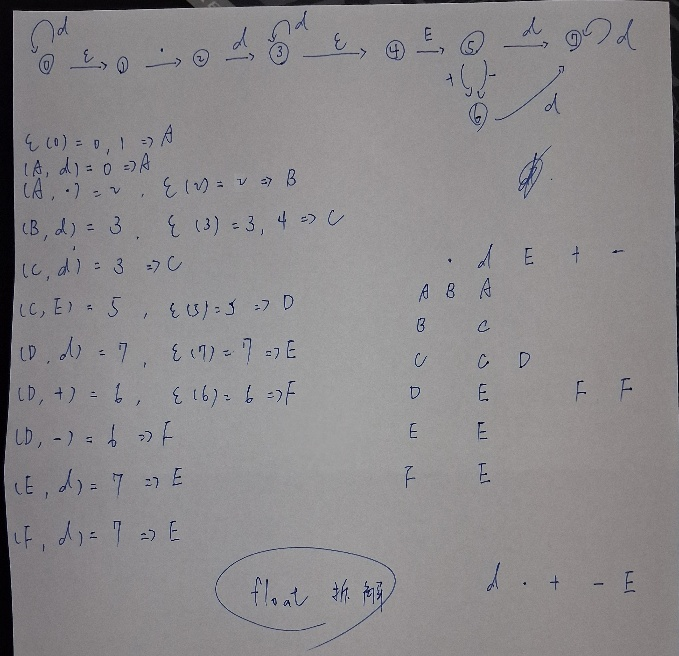 d d
0 ε 1 · 2 d 3 ε 4 E 5 d 7 d
+ -
6 d
ε(0) = 0, 1 => A
(A, d) = 0 => A
(A, ·) = 2 , ε(2) = 2 => B
(B, d) = 3 , ε(3) = 3, 4 => C
(C, d) = 3 => C
(C, E) = 5 , ε(5) = 5 => D
(D, d) = 7 , ε(7) = 7 => E
(D, +) = 6 , ε(6) = 6 => F
(D, -) = 6 => F
(E, d) = 7 => E
(F, d) = 7 => E
· d E + -
A B A
B C
C C D
D E F F
E E
F E
float 拆解
d · + - E